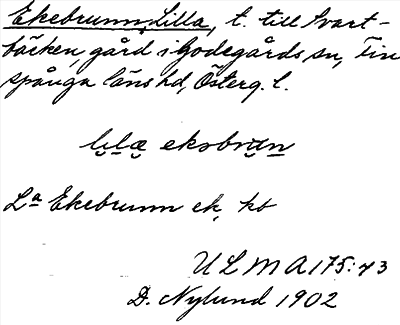 Ekebrunn, Lilla, t. till Svart-
bäcken, gård i Godegårds sn, Fin
spånga läns hd, Österg. l.
lilæ ekobrun
La Ekebrunn ek, kb
ULMA 175:43
D. Nylund 1902